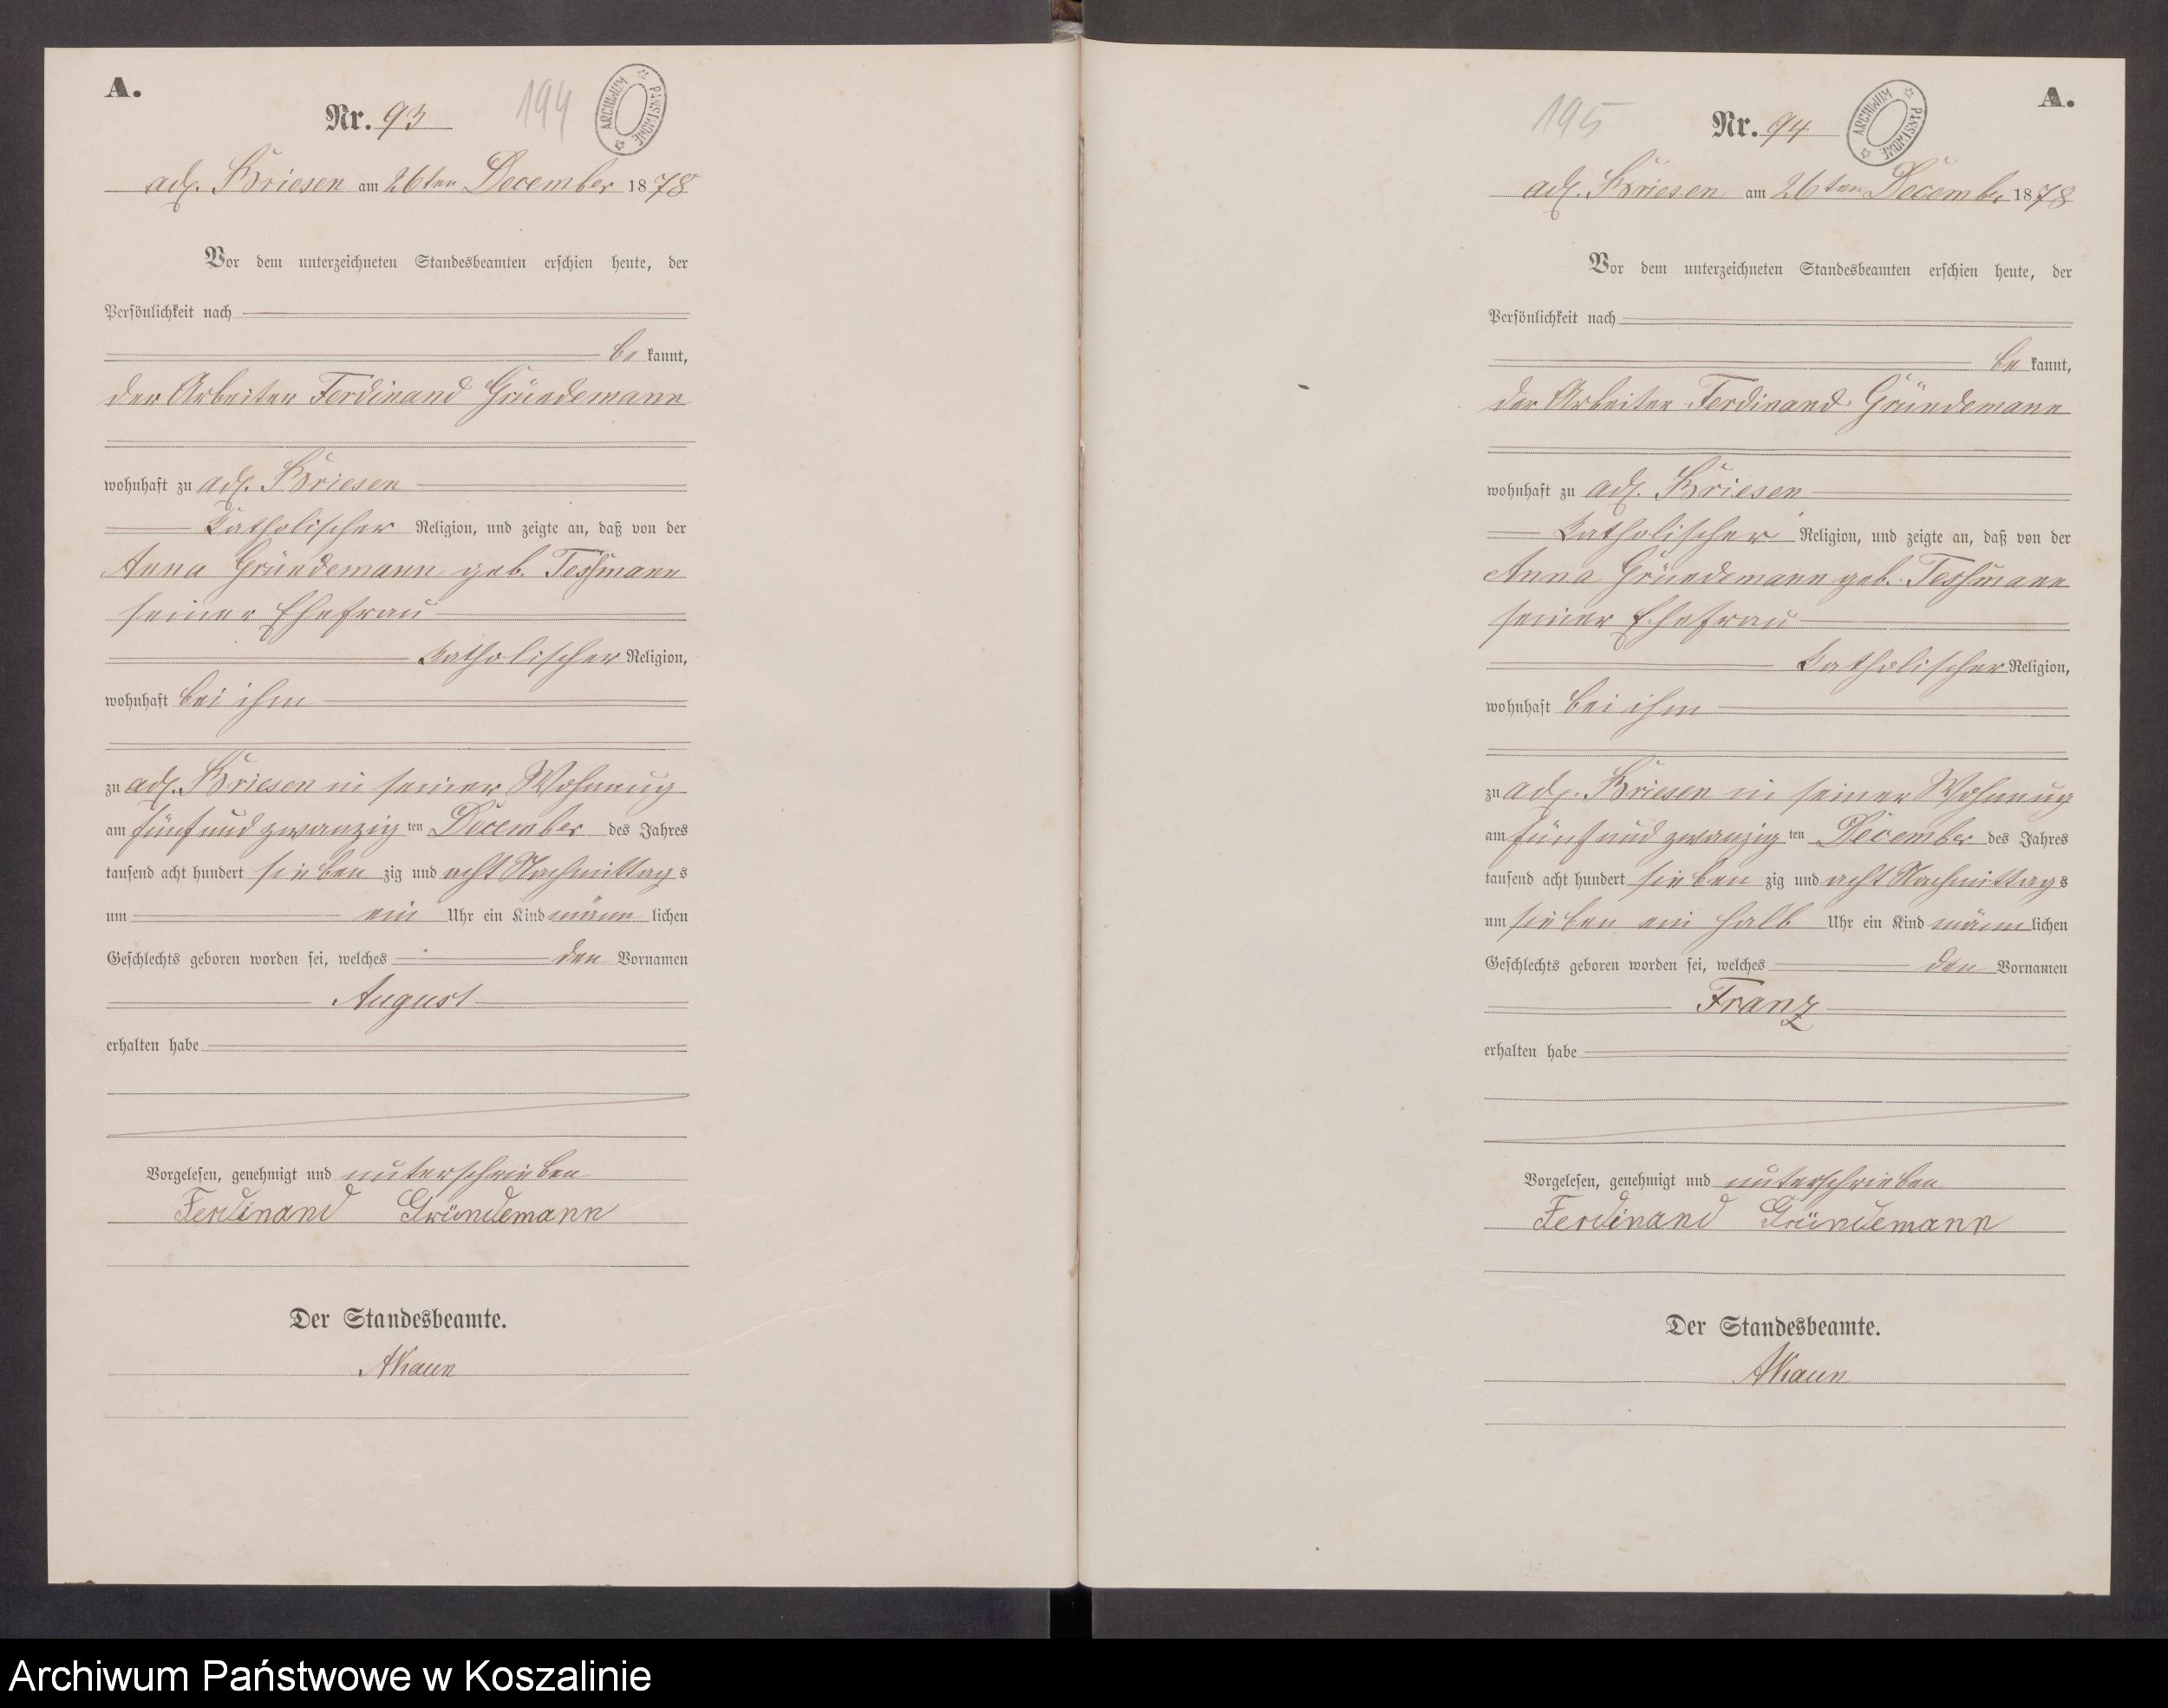 A.
Nr. 93
194
ARCHIWUM PAŃSTWOWE
adl. Briesen am 26ten December 1878
Vor dem unterzeichneten Standesbeamten erschien heute, der
Persönlichkeit nach
be kannt,
der Arbeiter Ferdinand Gründemann
wohnhaft zu adl. Briesen
katholischer Religion, und zeigte an, daß von der
Anna Gründemann geb. Tessmann
seiner Ehefrau
katholischer Religion,
wohnhaft bei ihm
zu adl. Briesen in seiner Wohnung
am fünfundzwanzig ten December des Jahres
tausend acht hundert sieben zig und acht Nachmittags
um ein Uhr ein Kind männ lichen
Geschlechts geboren worden sei, welches den Vornamen
August
erhalten habe
Vorgelesen, genehmigt und unterschrieben
Ferdinand Gründemann
Der Standesbeamte.
A.
Nr. 94
195
ARCHIWUM PAŃSTWOWE
adl. Briesen am 26ten December 1878
Vor dem unterzeichneten Standesbeamten erschien heute, der
Persönlichkeit nach
be kannt,
der Arbeiter Ferdinand Gründemann
wohnhaft zu adl. Briesen
katholischer Religion, und zeigte an, daß von der
Anna Gründemann geb. Tessmann
seiner Ehefrau
katholischer Religion,
wohnhaft bei ihm
zu adl. Briesen in seiner Wohnung
am fünfundzwanzig ten December des Jahres
tausend acht hundert sieben zig und acht Nachmittags
um sieben ein halb Uhr ein Kind männ lichen
Geschlechts geboren worden sei, welches den Vornamen
Franz
erhalten habe
Vorgelesen, genehmigt und unterschrieben
Ferdinand Gründemann
Der Standesbeamte.
Archiwum Państwowe w Koszalinie